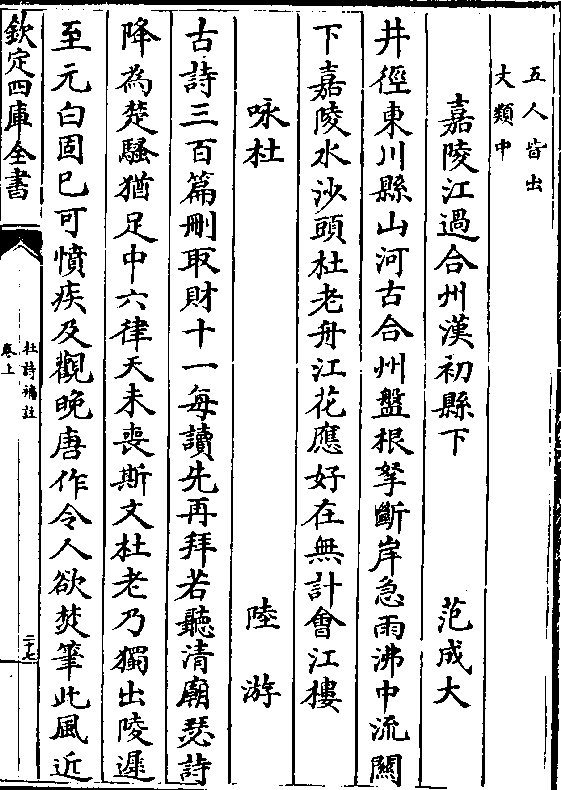 五人皆出
大類中
嘉陵江過合州漢初縣下　范成大
井徑東川縣山河古合州盤根拏斷岸急雨沸中流關
下嘉陵水沙頭杜老舟江花應好在無計會江樓
咏杜　陸游
古詩三百篇刪取財十一每讀先再拜若聽清廟瑟詩
降為楚騷猶足中六律天未喪斯文杜老乃獨出陵遲
至元白固已可憤疾及觀晚唐作令人欲焚筆此風近
欽定四庫全書
杜詩補註
卷上
二十七